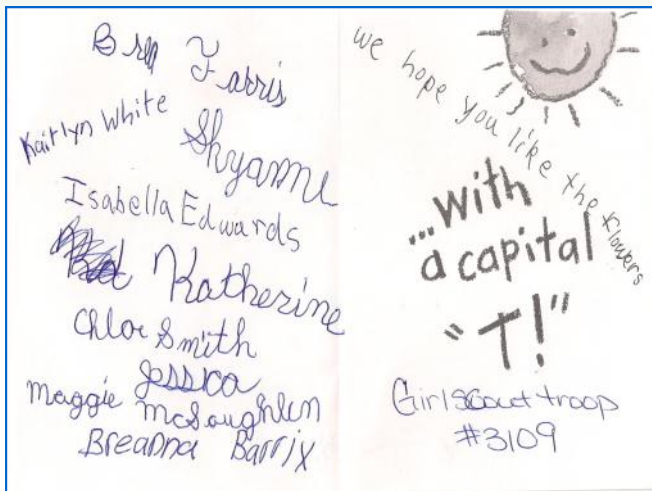 Bree Farris
Kaitlyn White
Shyanne
Isabella Edwards
Katherine
Chloe Smith
Jessica
Maggie McLoughlin
Breanna Barrix
we hope you like the flowers
...with
a capital
"T!"
Girl scout troop
#3109